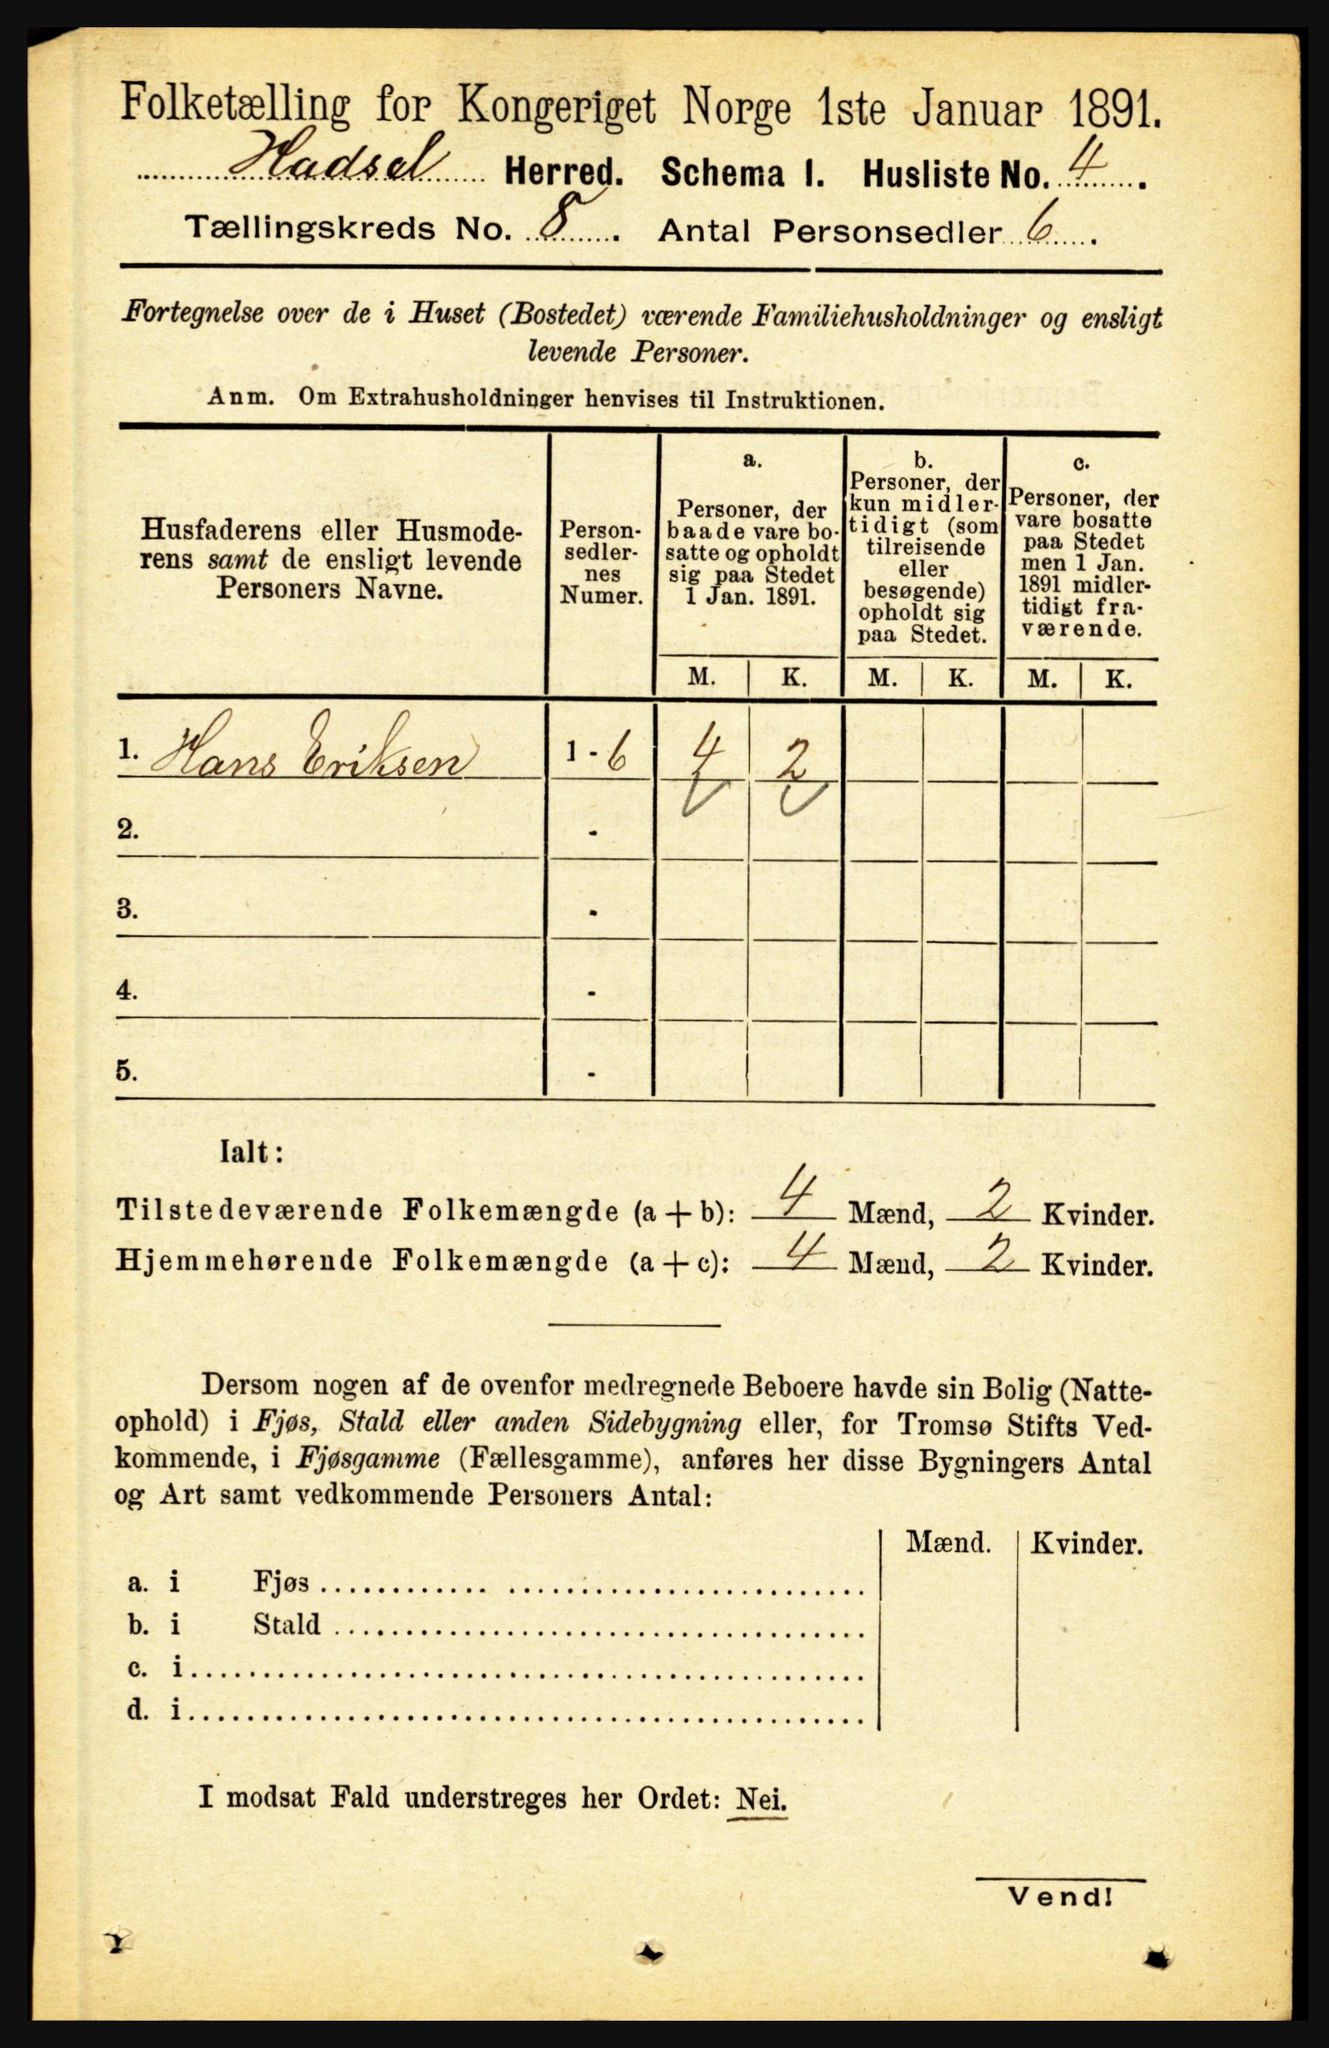 Folketælling for Kongeriget Norge 1ste Januar 1891.
Hadsel Herred. Schema I. Husliste No. 4.
Tællingskreds No. 8. Antal Personsedler 6.
Fortegnelse over de i Huset (Bostedet) værende Familiehusholdninger og ensligt
levende Personer.
Anm. Om Extrahusholdninger henvises til Instruktionen.
Husfaderens eller Husmode-
rens samt de ensligt levende
Personers Navne.
Person-
sedler-
nes
Numer.
a.
Personer, der
baade vare bo-
satte og opholdt
sig paa Stedet
1 Jan. 1891.
b.
Personer, der
kun midler-
tidigt (som
tilreisende
eller
besøgende)
opholdt sig
paa Stedet.
c.
Personer, der
vare bosatte
paa Stedet
men 1 Jan.
1891 midler-
tidigt fra-
værende.
M. K. M. K. M. K.
1. Hans Eriksen 1 - 6 4 2
2. -
3. -
4. -
5. -
Ialt:
Tilstedeværende Folkemængde (a + b): 4 Mænd, 2 Kvinder.
Hjemmehørende Folkemængde (a + c): 4 Mænd, 2 Kvinder.
Dersom nogen af de ovenfor medregnede Beboere havde sin Bolig (Natte-
ophold) i Fjøs, Stald eller anden Sidebygning eller, for Tromsø Stifts Ved-
kommende, i Fjøsgamme (Fællesgamme), anføres her disse Bygningers Antal
og Art samt vedkommende Personers Antal:
Mænd. Kvinder.
a. i Fjøs
b. i Stald
c. i
d. i
I modsat Fald understreges her Ordet: Nei.
Vend!